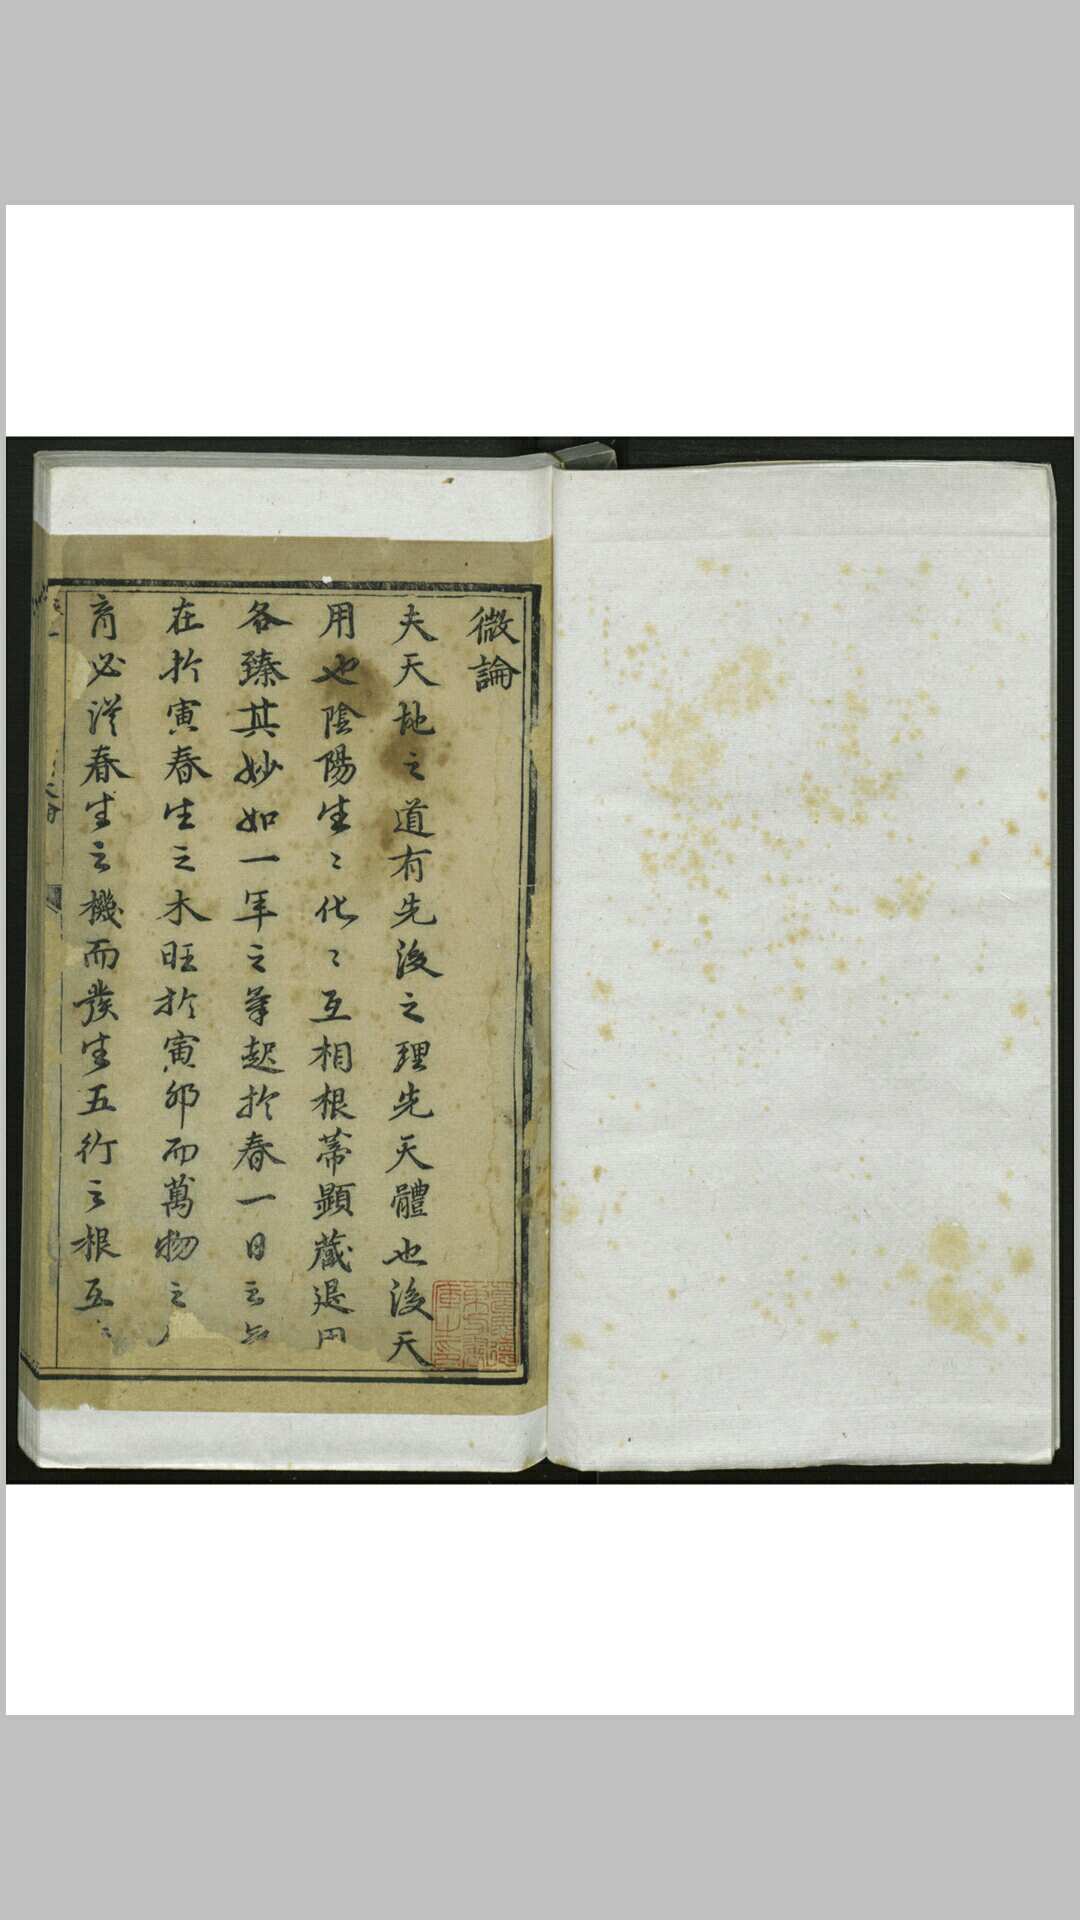 微論
夫天地之道有先後之理先天體也後天
用也陰陽生〻化〻互相根蒂顯藏退
各臻其妙如一年之筭起於春一日之
在於寅春生之木旺於寅卯而萬物之
育必從春生之機而發生五行之根互